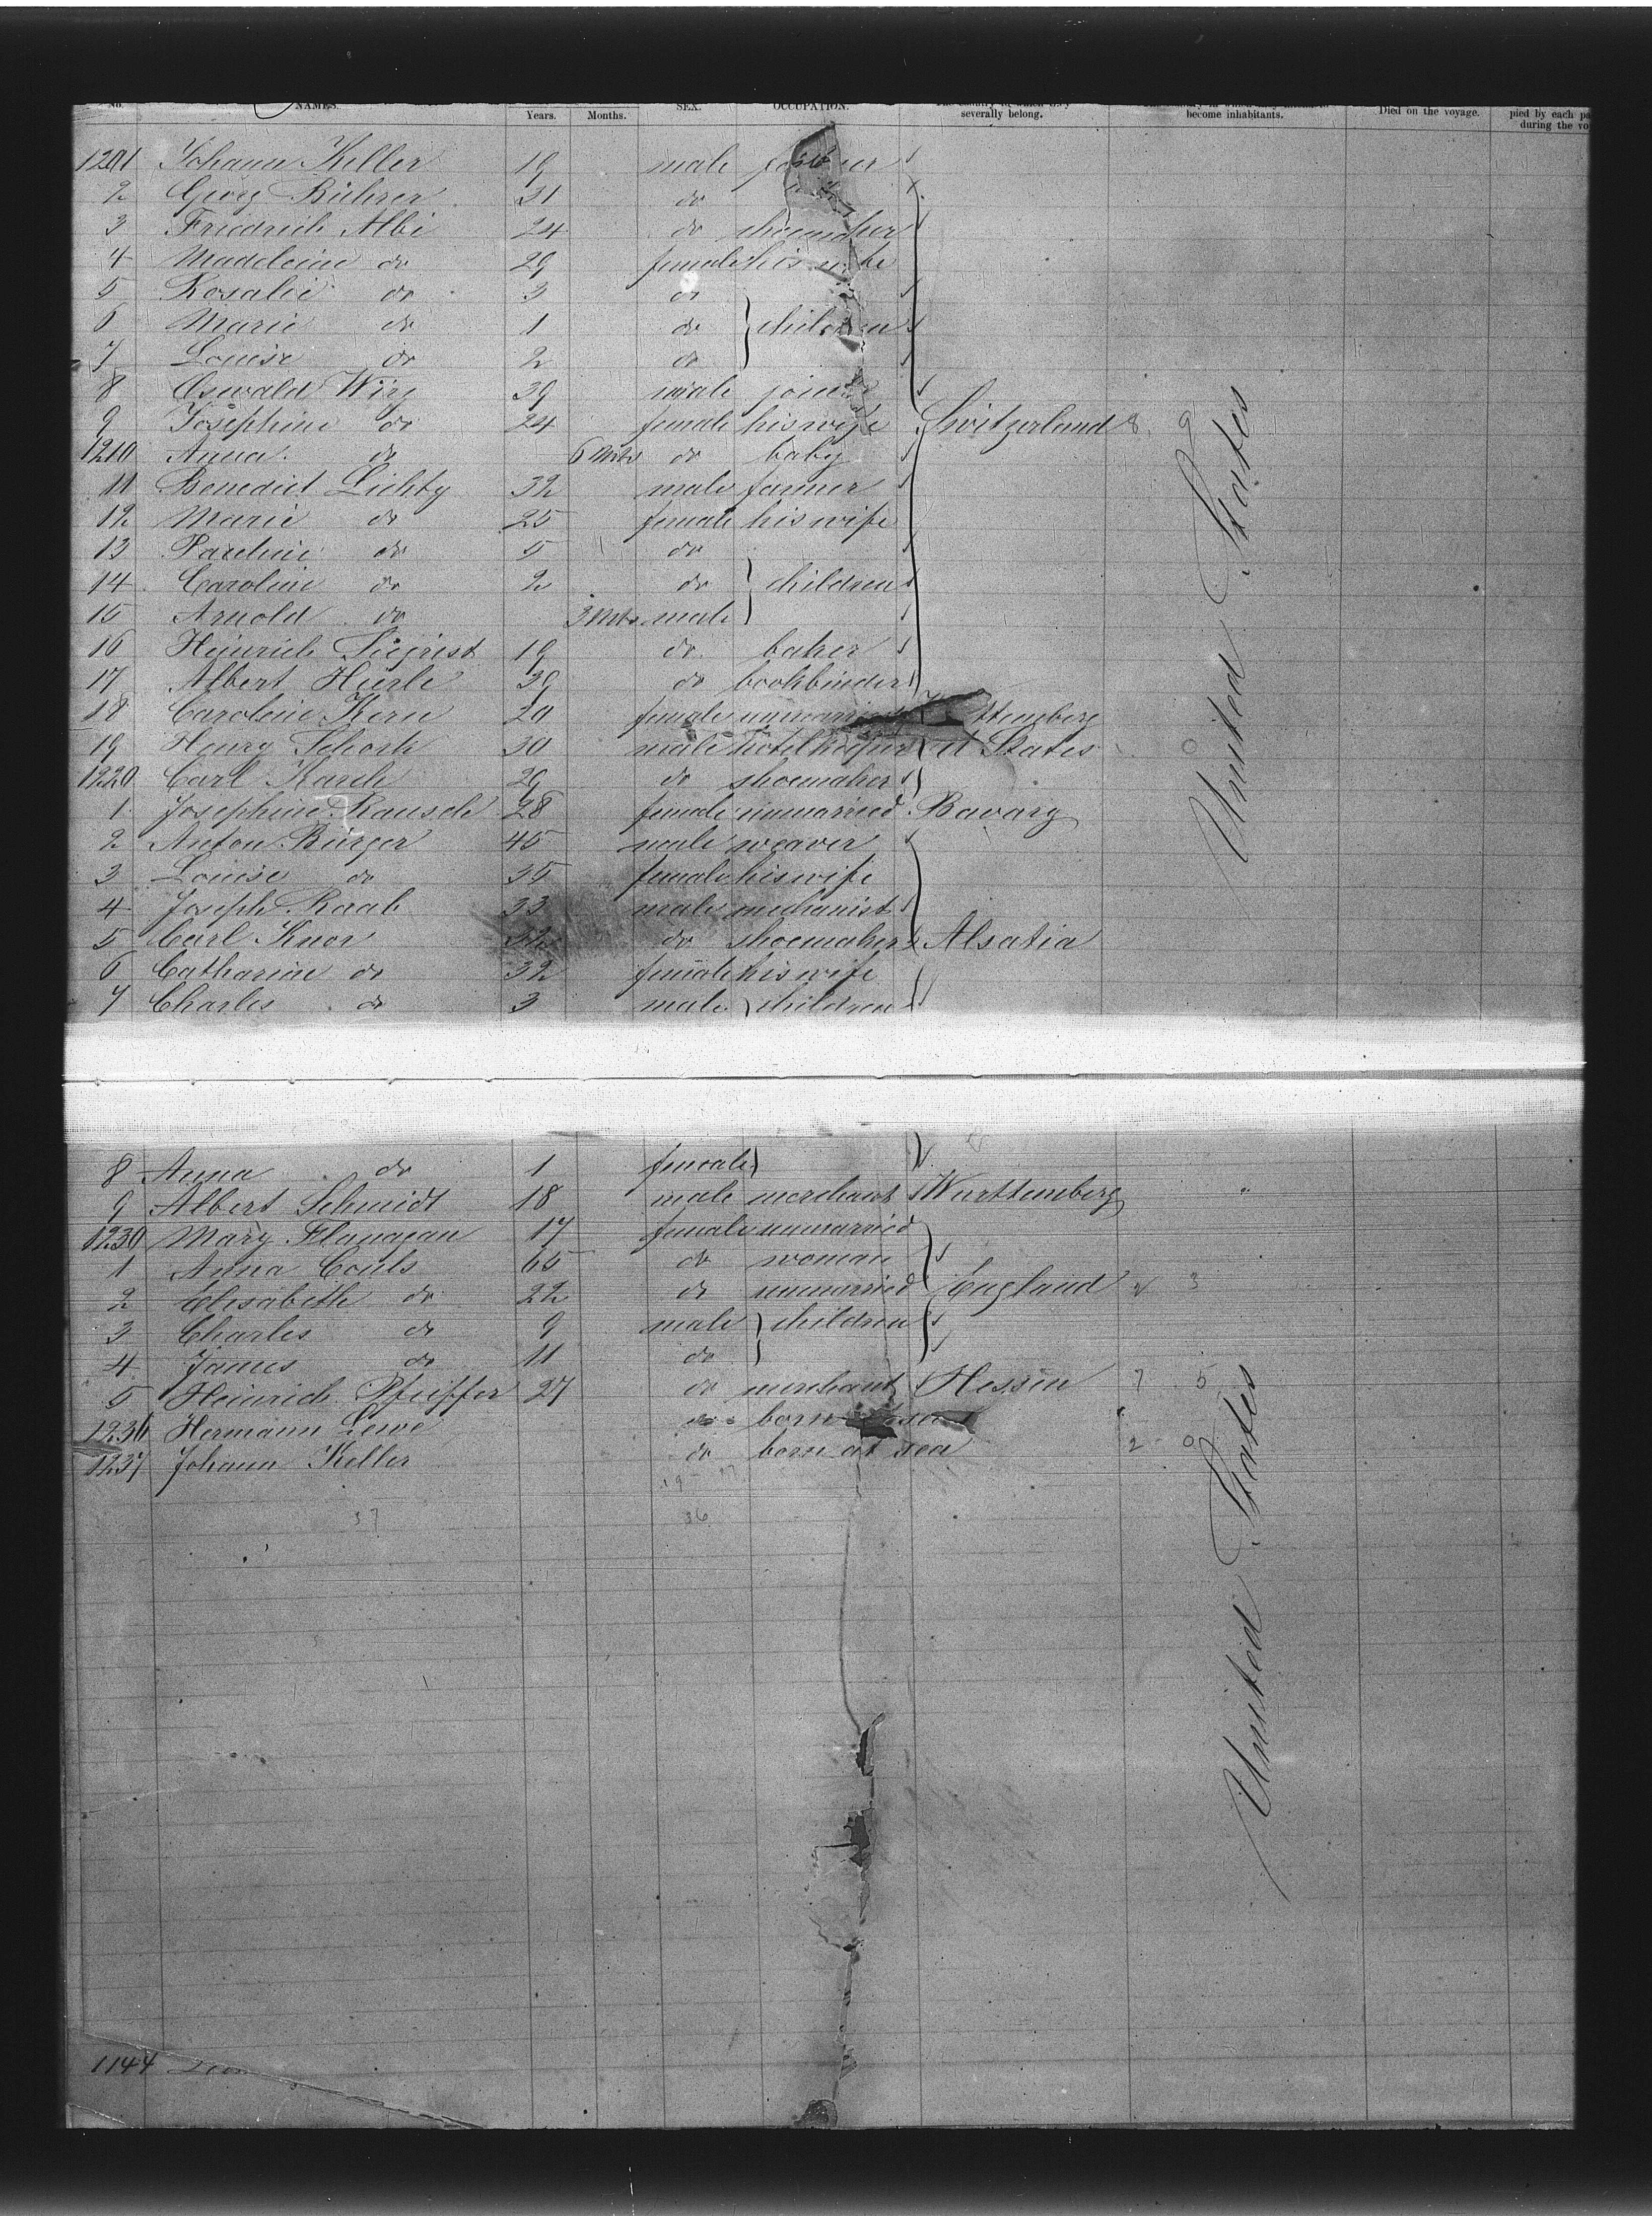 No. NAMES. Years. Months. SEX. OCCUPATION. severally belong. become inhabitants. Died on the voyage. pied by each pa
during the vo
1201 Johann Keller 19 male
2 Georg Bührer 31 do
3 Friedrich Albi 24 do shoemaker
4 Madeleine do 29 female his wife
5 Rosalie do 3 do
6 Marie do 1 do children
7 Louise do 2 do
8 Oswald Wirz 39 male joiner
9 Josephine do 24 female his wife Switzerland 8 9
1210 Anna do 6 Mts do baby
11 Benedict Lichty 32 male farmer
12 Marie do 25 female his wife
13 Pauline do 5 do
14 Caroline do 2 do children
15 Arnold do 3 Mts male
16 Heinrich Siegrist 19 do baker
17 Albert Hürle 39 do bookbinder
18 Caroline Kern 20 female unmarried ttemberg
19 Henry Schork 30 male hotelkeeper U States 0
1220 Carl Karch 29 do shoemaker
1 Josephine Rausch 28 female unmarried Bavary
2 Anton Bürger 45 male weaver
3 Louise do 35 female his wife
4 Joseph Raab 33 male mechanist
5 Carl Knor do shoemaker Alsatia
6 Catharine do 32 female his wife
7 Charles do 3 male children
United States
8 Anna do 1 female
9 Albert Schmidt 18 male merchant Wurttemberg "
1230 Mary Flanagan 17 female unmarried
1 Anna Couls 65 do woman
2 Elisabeth do 22 do unmarried England 2 3
3 Charles do 9 male children
4 James do 11 do
5 Heinrich Pfeiffer 27 do merchant Hessen 7 5
1236 Hermann Lewe do born
1237 Johann Keller do born at sea 2 0
19 17
37 36
United States
1144